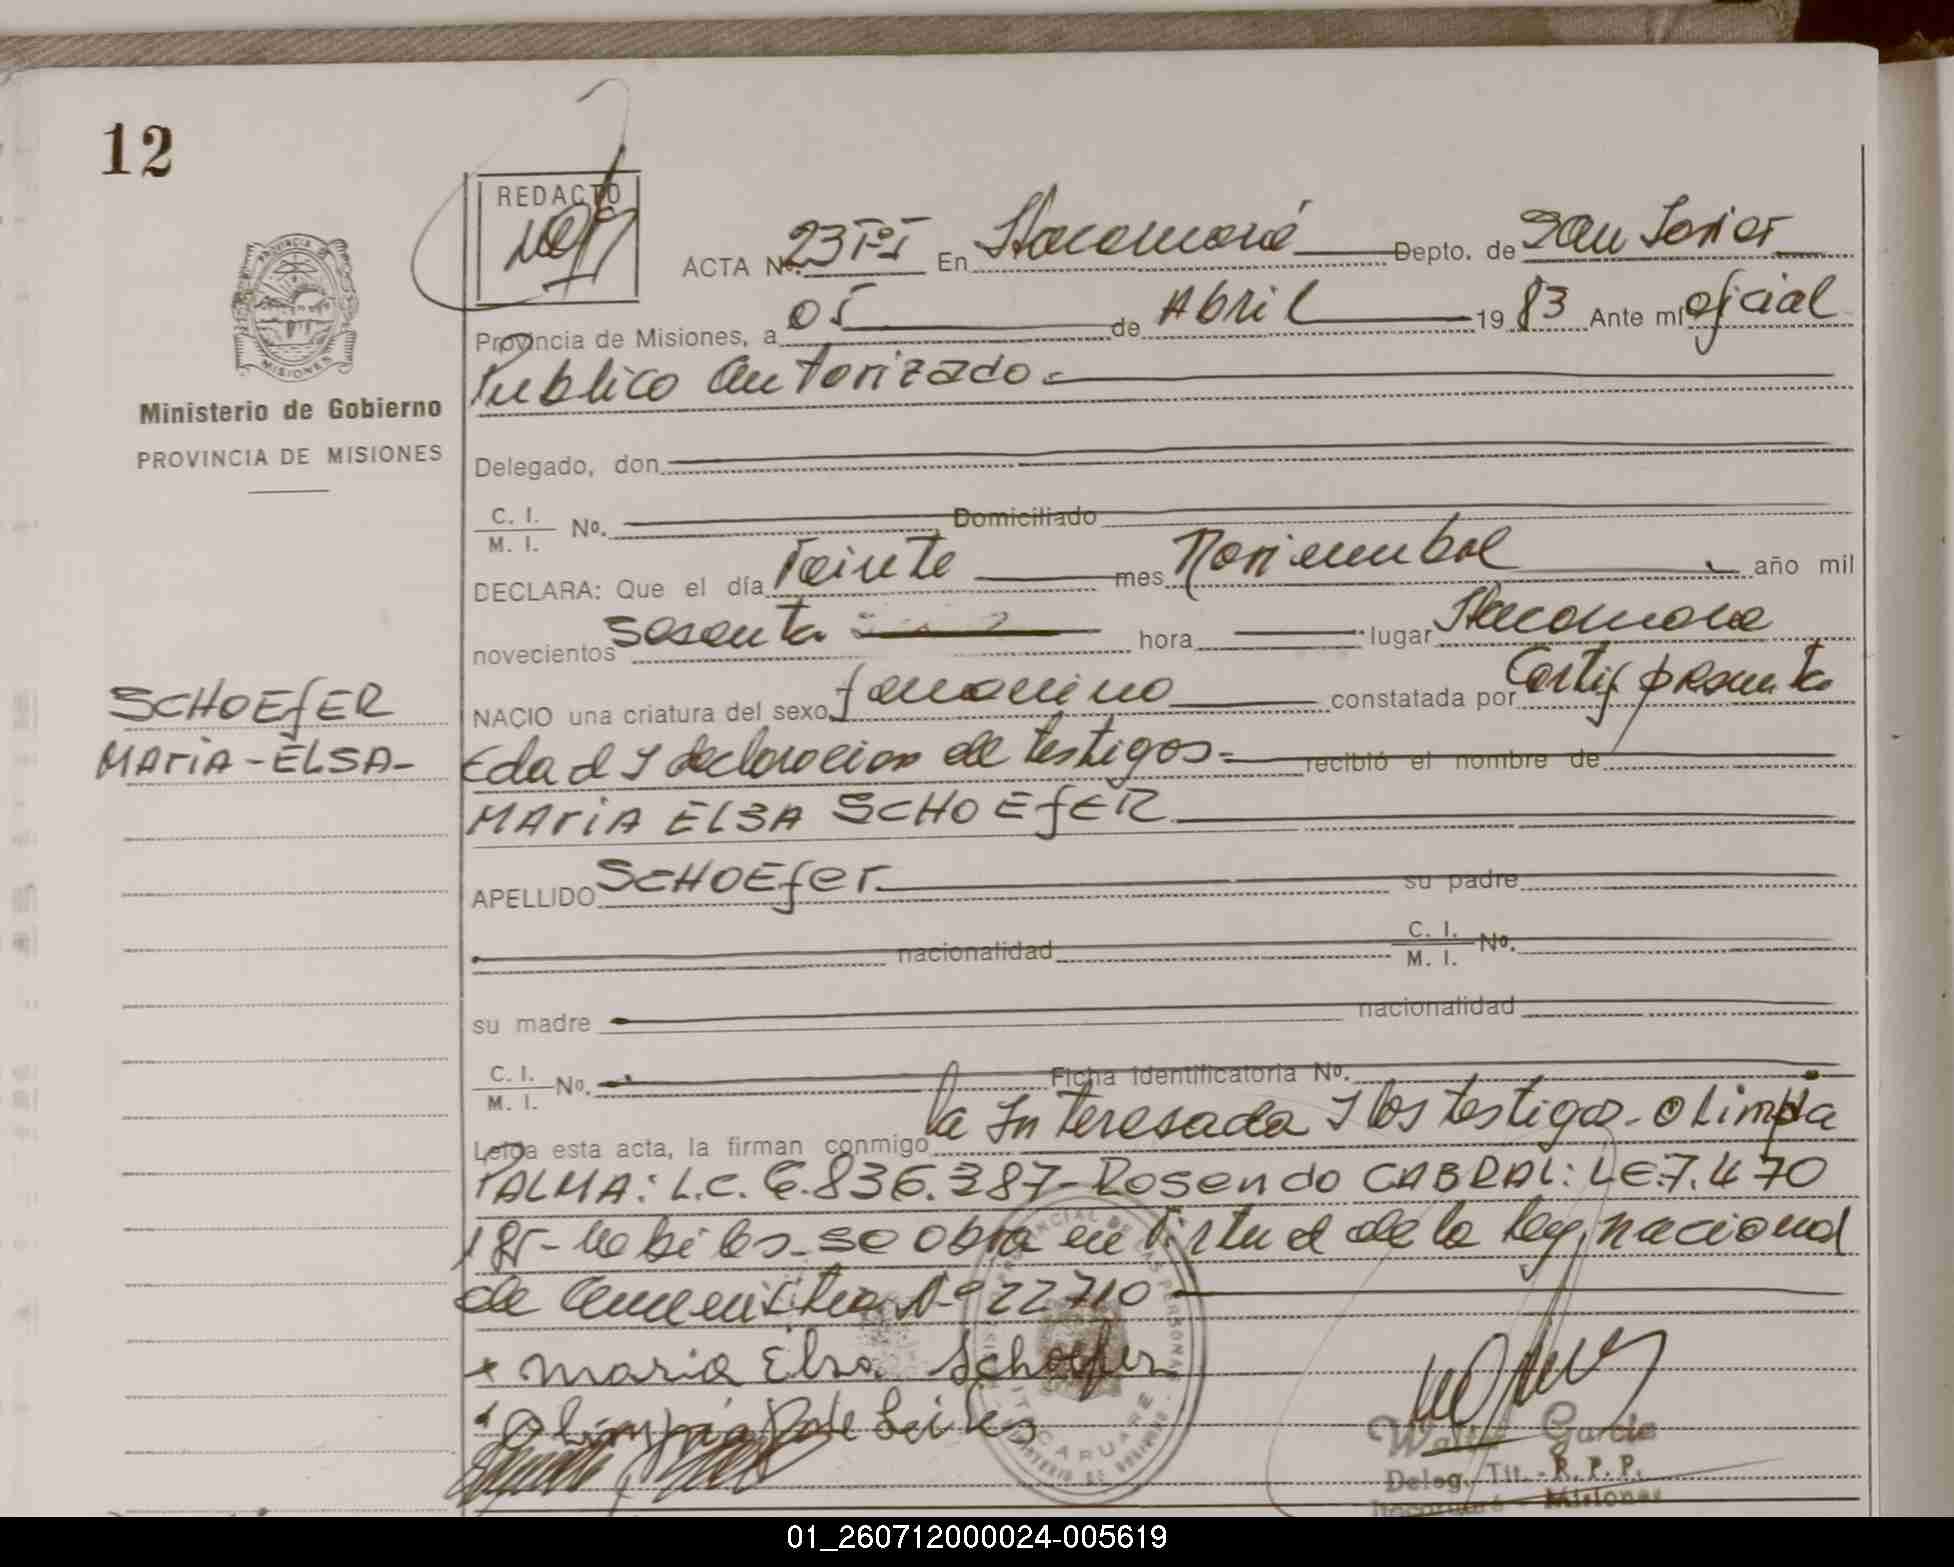 12
REDACTO
ACTA Nº. 23 TºI En Itacaruaré Depto. de San Javier
Provincia de Misiones, a 05 de Abril 1983 Ante mi oficial
Publico autorizado.
Ministerio de Gobierno
PROVINCIA DE MISIONES
Delegado, don
C. I.
M. I. Nº. Domiciliado
DECLARA: Que el día Veinte mes Noviembre año mil
novecientos sesenta hora lugar Itacaruare
NACIO una criatura del sexo femenino constatada por Certif presunta
SCHOEfER
MAriA-ELSA-
Edad y declaracion de testigos- recibió el nombre de
MAriA ELSA SCHOEfER
APELLIDO SCHOEfer su padre
nacionalidad C. I.
M. I. Nº.
su madre nacionalidad
C. I.
M. I. Nº. Ficha Identificatoria Nº.
Leida esta acta, la firman conmigo la Interesada y los testigos-OLimpia
PALMA: L.C. 6.836.387-Rosendo CABRAL: LE.7.470
185-habiles-se obra en Virtud de la ley nacional
de amnistia Nº 22710
x Maria Elsa Schoefer
Olimpia
Garcia
Deleg. Tit. - R. P. P.
Itacaruaré - Misiones
ITACARUARE
01_260712000024-005619